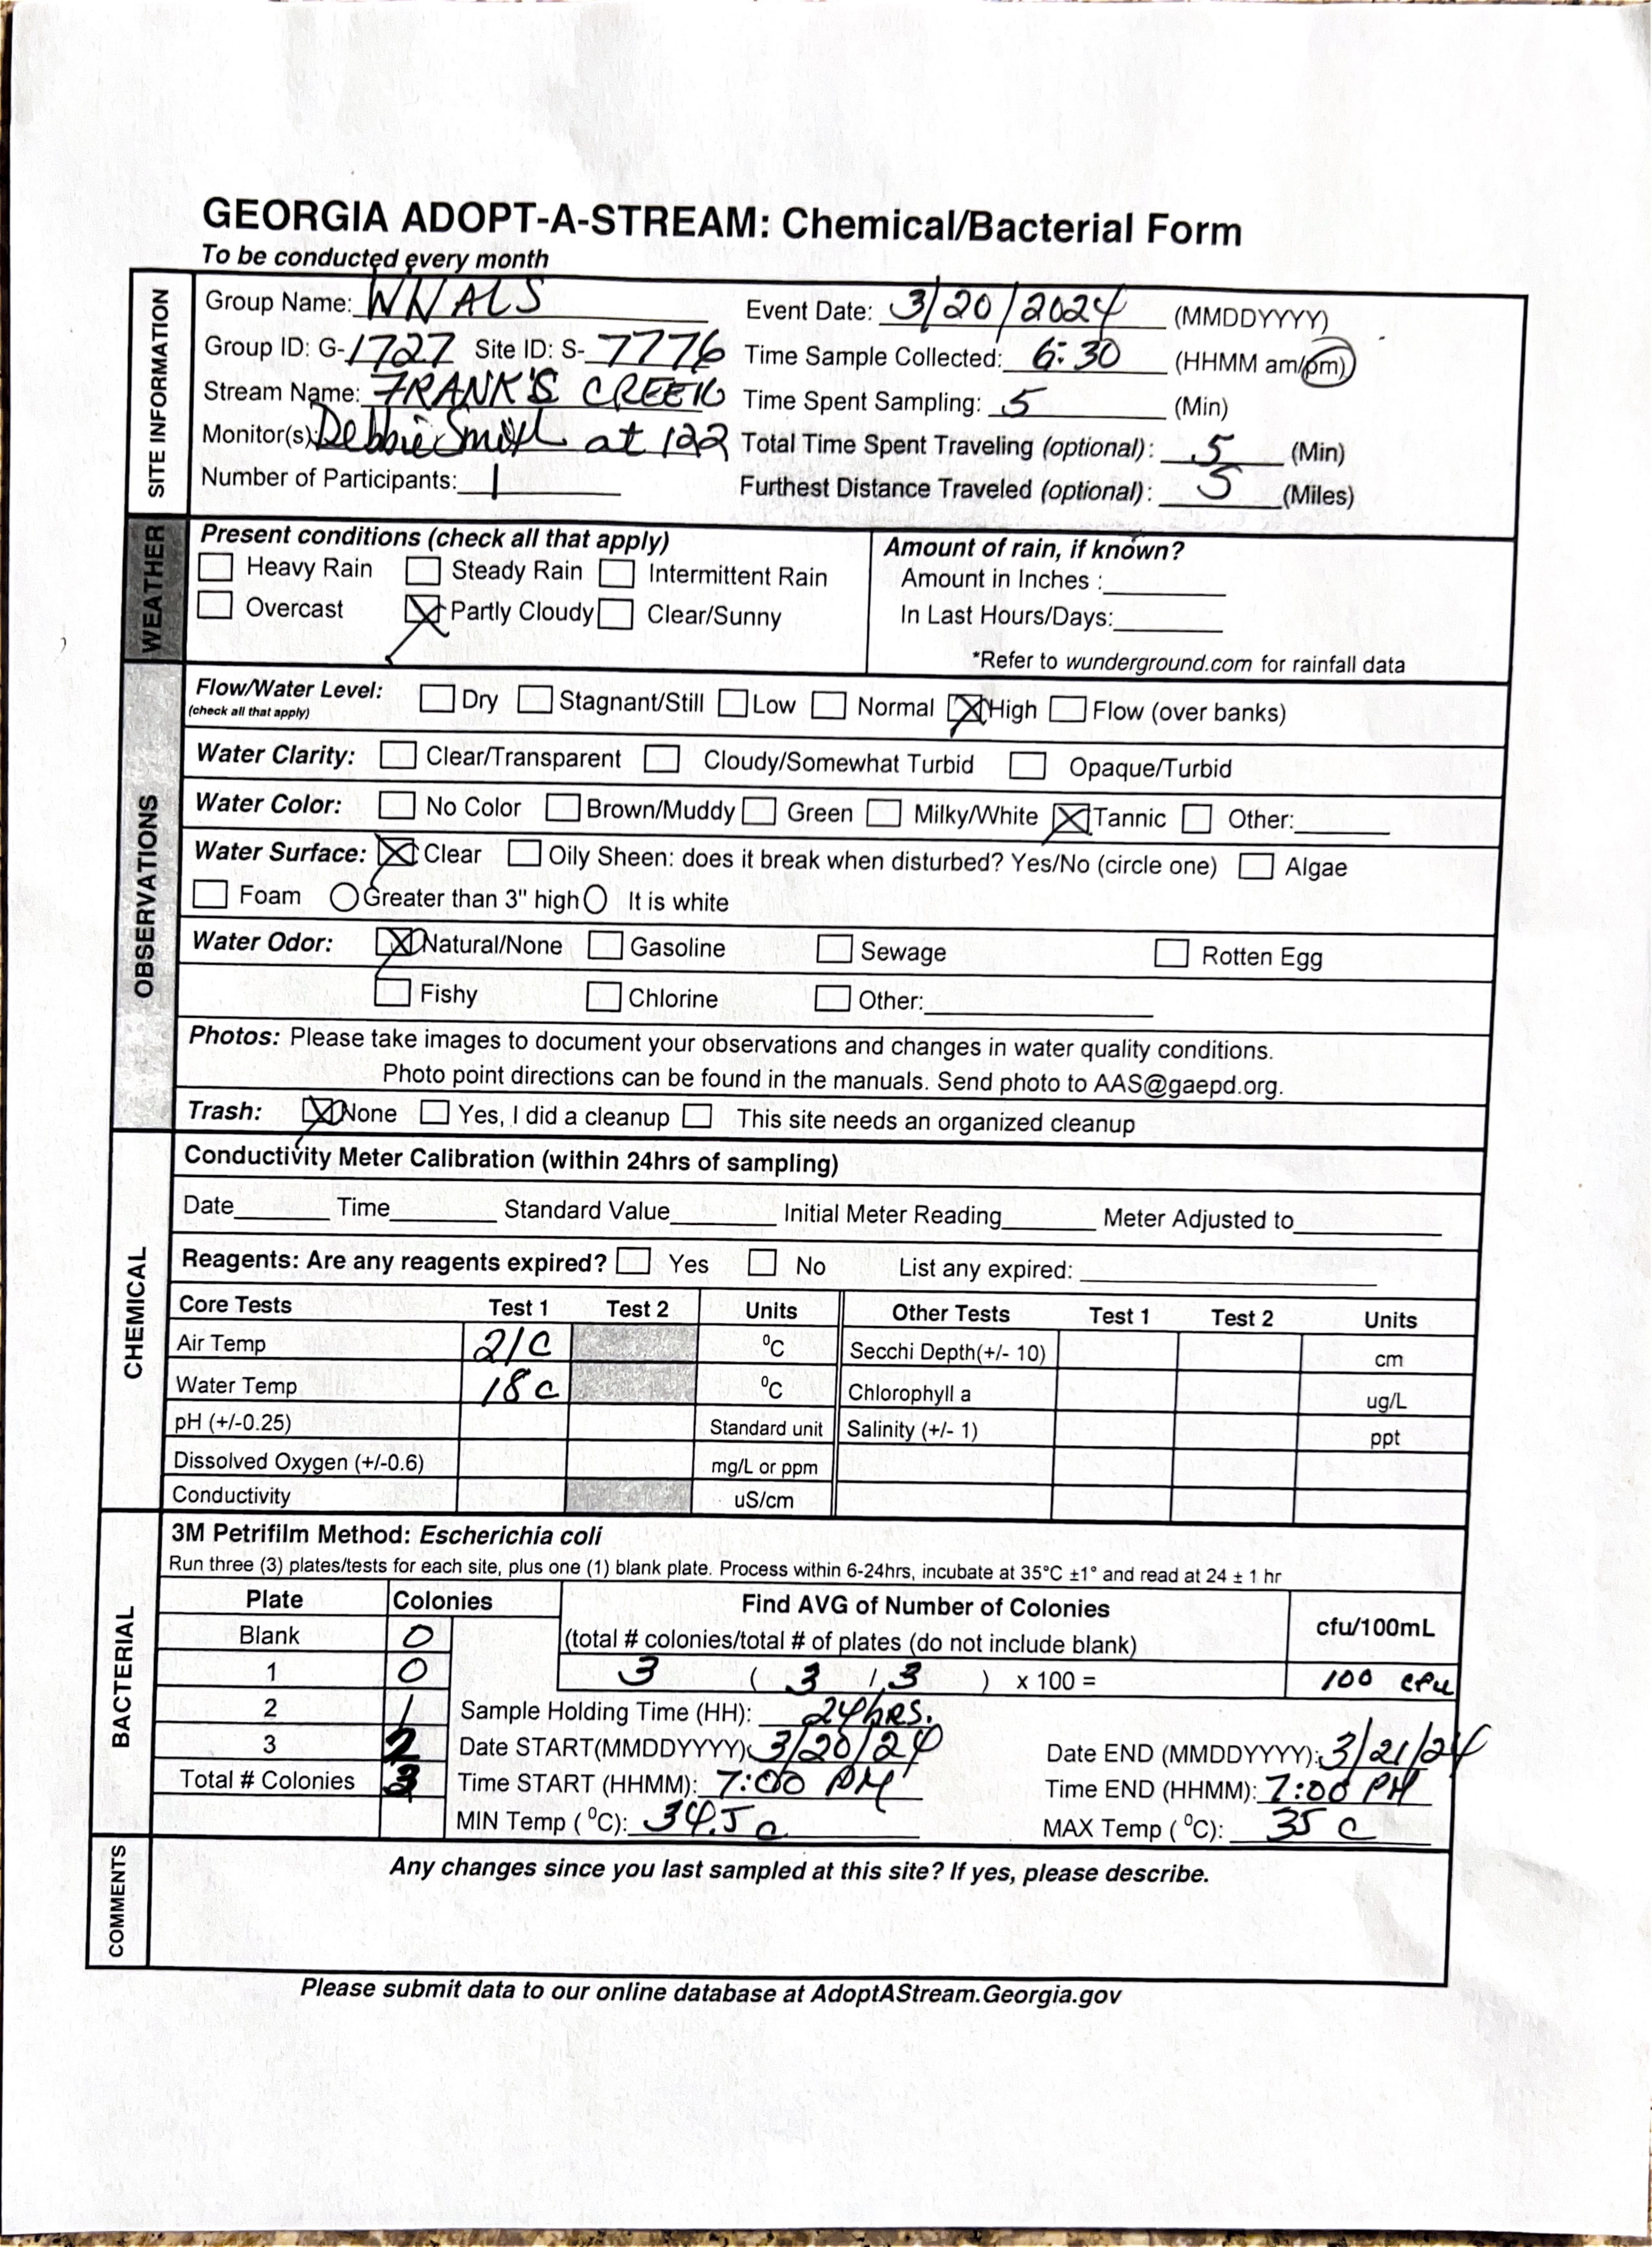 GEORGIA ADOPT-A-STREAM: Chemical/Bacterial Form
To be conducted every month
SITE INFORMATION
Group Name: WWALS
Event Date: 3/20/2024 (MMDDYYYY)
Group ID: G-1727 Site ID: S-7776
Time Sample Collected: 6:30 (HHMM am/pm)
Stream Name: FRANK'S CREEK
Time Spent Sampling: 5 (Min)
Monitor(s): Debbie Smith at 122
Total Time Spent Traveling (optional): 5 (Min)
Number of Participants: 1
Furthest Distance Traveled (optional): 5 (Miles)
WEATHER
Present conditions (check all that apply)
Heavy Rain Steady Rain Intermittent Rain
Overcast Partly Cloudy Clear/Sunny
Amount of rain, if known?
Amount in Inches :
In Last Hours/Days:
*Refer to wunderground.com for rainfall data
OBSERVATIONS
Flow/Water Level: Dry Stagnant/Still Low Normal High Flow (over banks)
(check all that apply)
Water Clarity: Clear/Transparent Cloudy/Somewhat Turbid Opaque/Turbid
Water Color: No Color Brown/Muddy Green Milky/White Tannic Other:
Water Surface: Clear Oily Sheen: does it break when disturbed? Yes/No (circle one) Algae
Foam Greater than 3" high It is white
Water Odor: Natural/None Gasoline Sewage Rotten Egg
Fishy Chlorine Other:
Photos: Please take images to document your observations and changes in water quality conditions.
Photo point directions can be found in the manuals. Send photo to AAS@gaepd.org.
Trash: None Yes, I did a cleanup This site needs an organized cleanup
CHEMICAL
Conductivity Meter Calibration (within 24hrs of sampling)
Date Time Standard Value Initial Meter Reading Meter Adjusted to
Reagents: Are any reagents expired? Yes No List any expired:
Core Tests Test 1 Test 2 Units Other Tests Test 1 Test 2 Units
Air Temp 21C ⁰C Secchi Depth(+/- 10) cm
Water Temp 18c ⁰C Chlorophyll a ug/L
pH (+/-0.25) Standard unit Salinity (+/- 1) ppt
Dissolved Oxygen (+/-0.6) mg/L or ppm
Conductivity uS/cm
BACTERIAL
3M Petrifilm Method: Escherichia coli
Run three (3) plates/tests for each site, plus one (1) blank plate. Process within 6-24hrs, incubate at 35°C ±1° and read at 24 ± 1 hr
Plate Colonies Find AVG of Number of Colonies cfu/100mL
Blank 0 (total # colonies/total # of plates (do not include blank)
1 0 3 ( 3 / 3 ) x 100 = 100 cfu
2 1 Sample Holding Time (HH): 24hRS.
3 2 Date START(MMDDYYYY): 3/20/24 Date END (MMDDYYYY): 3/21/24
Total # Colonies 3 Time START (HHMM): 7:00 PM Time END (HHMM): 7:00 PM
MIN Temp ( ⁰C): 34.5 c MAX Temp ( ⁰C): 35 c
COMMENTS
Any changes since you last sampled at this site? If yes, please describe.
Please submit data to our online database at AdoptAStream.Georgia.gov